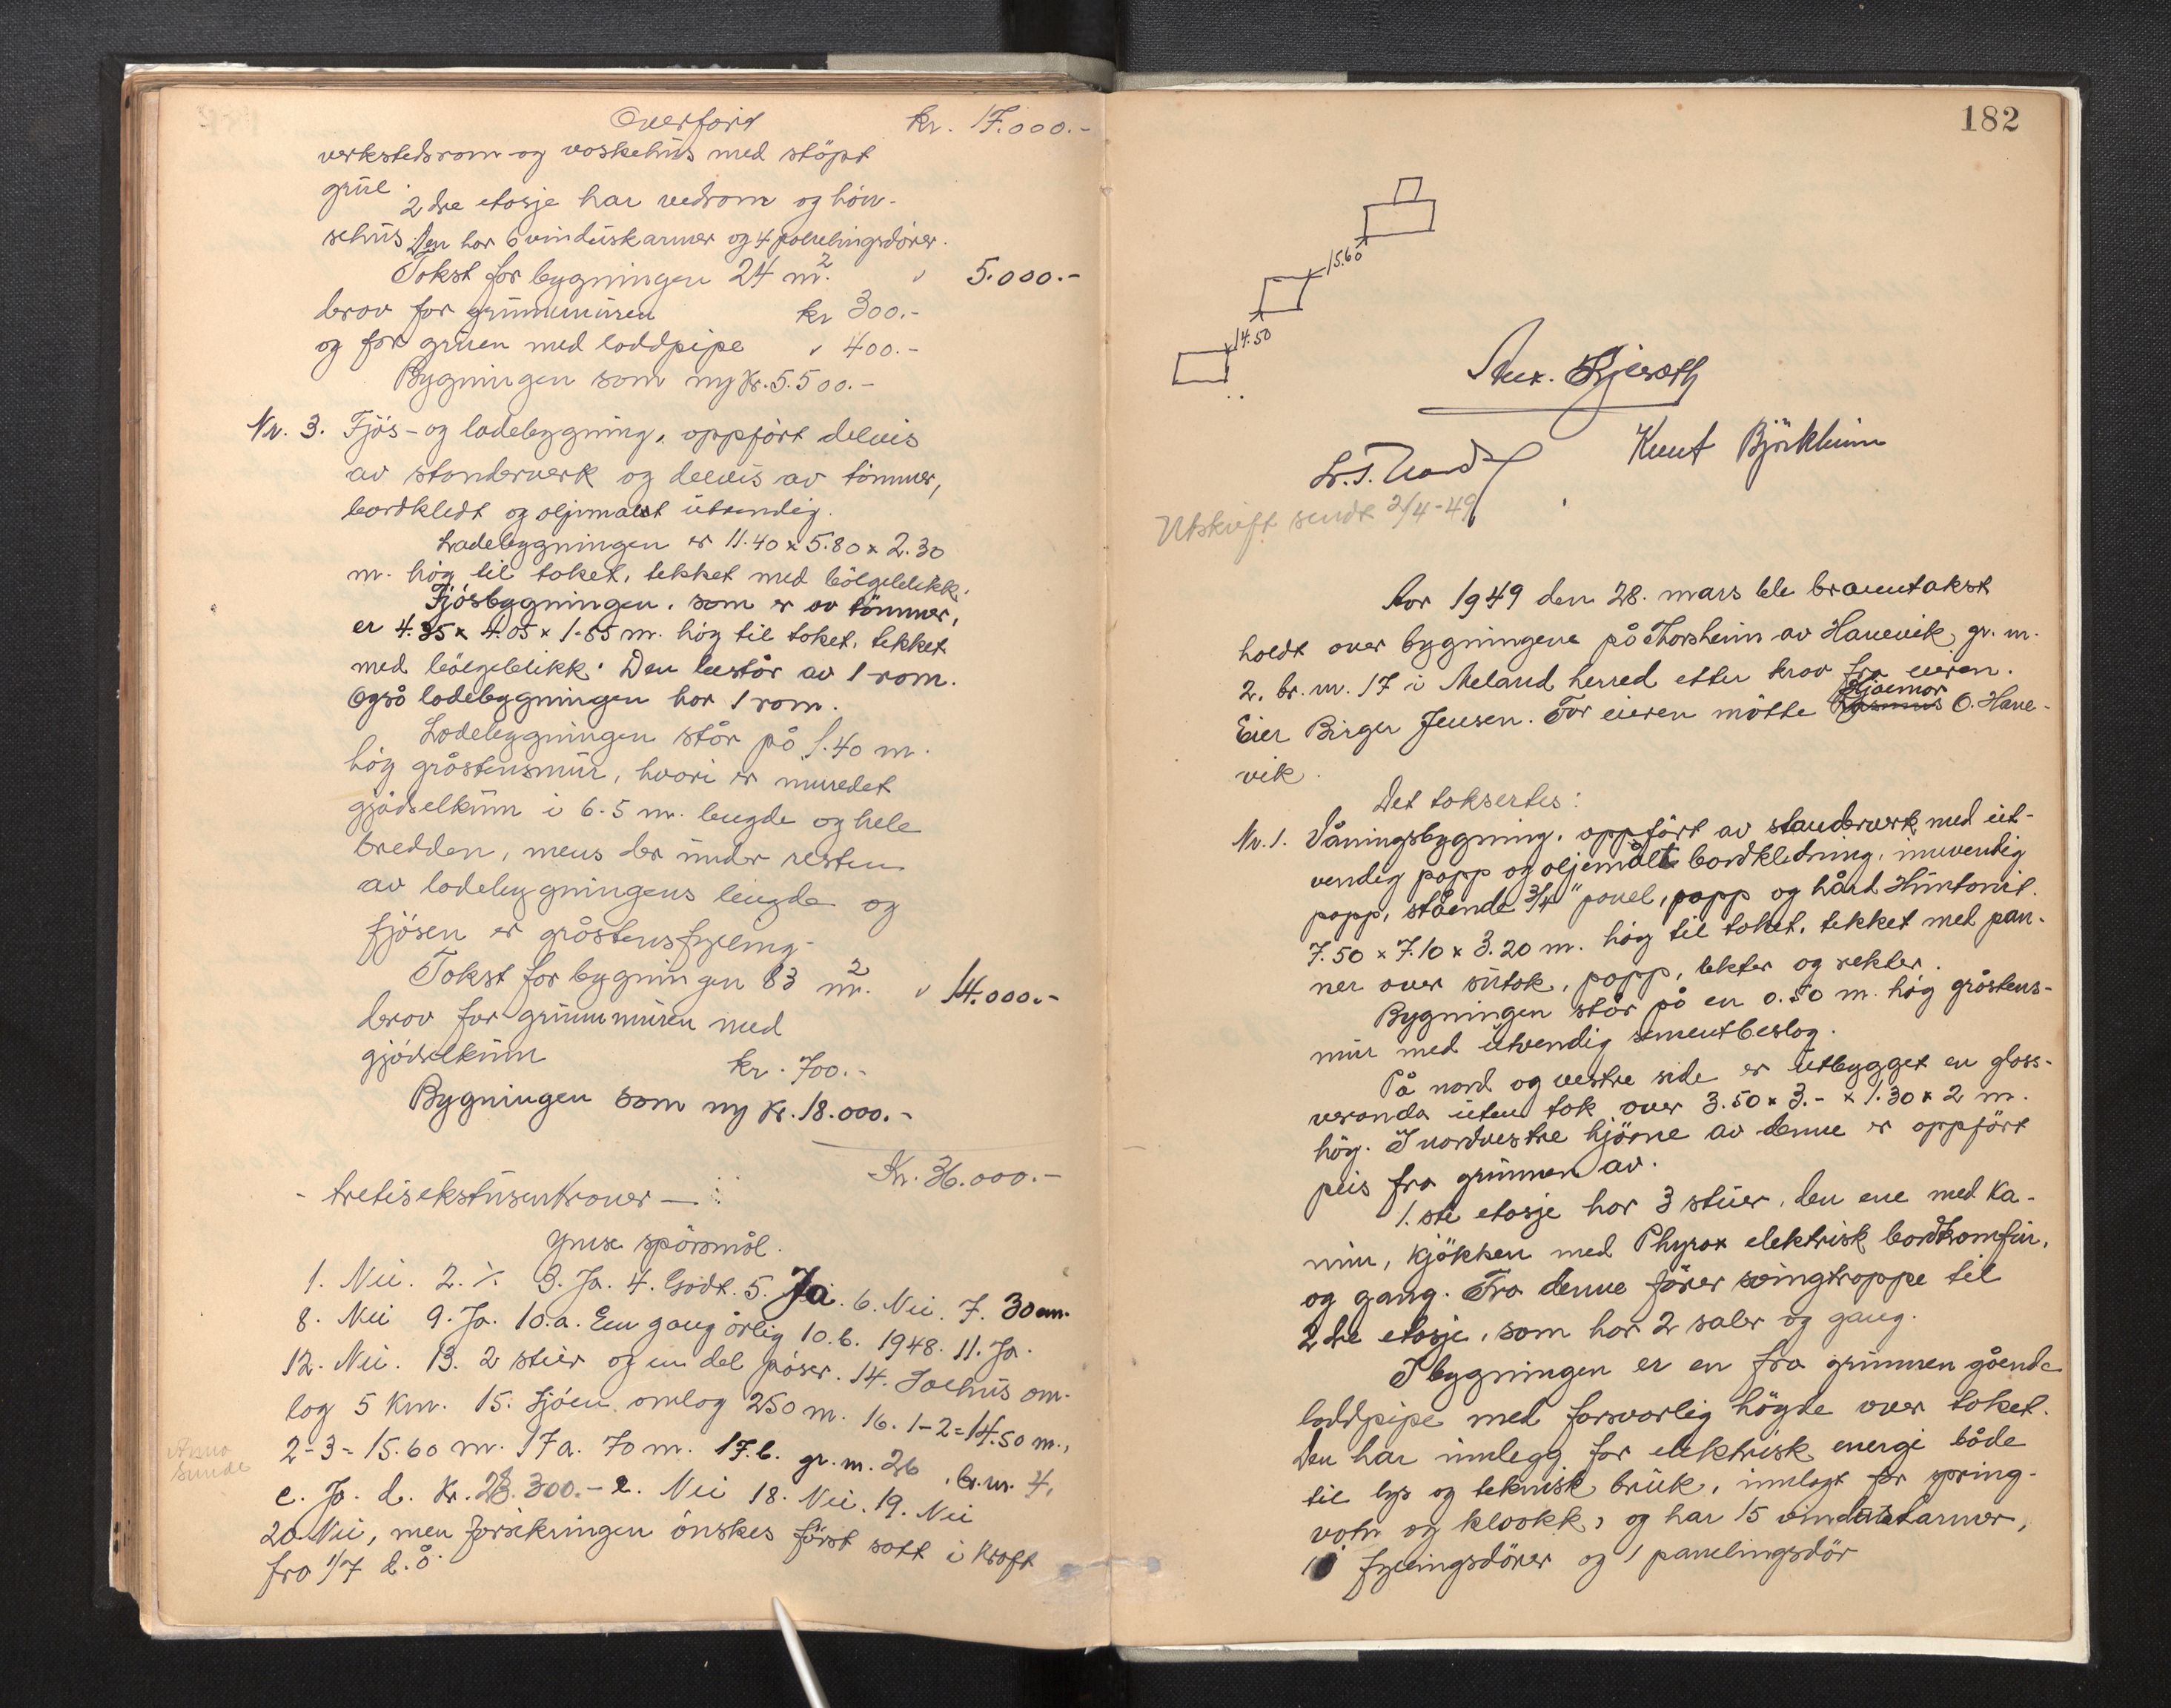 Overført kr. 17.000.-
verkstedsrom og vaskehus med støpt
grue.
2dre etasje har vedrom og høn-
sehus. Den har 6 vinduskarmer og 4 panelingsdører.
Takst for bygningen 24 m². " 5.000.-
derav for grunnmuren kr 300.-
og for gruen med loddpipe " 400.-
Bygningen som ny kr. 5.500.-
Nr. 3. Fjøs- og ladebygning, oppført delvis
av standerverk og delvis av tømmer,
bordkledt og oljemalt utvendig.
Ladebygningen er 11.40 x 5.80 x 2.30
m. høg til taket, tekket med bølgeblikk.
Fjøsbygningen, som er av tømmer,
er 4.35 x 4.05 x 1.85 m. høg til taket, tekket
med bølgeblikk. Den består av 1 rom.
Også ladebygningen har 1 rom.
Ladebygningen står på 1.40 m.
høg gråstensmur, hvori er innredet
gjødselkum i 6.5 m. lengde og hele
bredden, mens der under resten
av ladebygningens lengde og
fjøsen er gråstensfylling.
Takst for bygningen 83 m². " 14.000.-
derav for grunnmuren med
gjødselkum kr. 700.-
Bygningen som ny kr. 18.000.-
Kr. 36.000.-
- tretisekstusenkroner -
Ymse spørsmål.
1. Nei. 2. ∕. 3. Ja. 4. Godt. 5. Ja. 6. Nei. 7. 30 cm.
8. Nei 9. Ja. 10.a. Een gang årlig 10.b. 1948. 11. Ja.
12. Nei. 13. 2 stier og en del pøser. 14. Joehus om-
lag 5 km. 15. Sjøen omlag 250 m. 16. 1-2=14.50 m.,
2-3= 15.60 m. 17a. 70 m. 17.b. gr. nr. 26, br. nr. 4,
c. Ja. d. kr. 28.300.- e. Nei 18. Nei. 19. Nei
20 Nei, men forsikringen ønskes først satt i kraft
fra 1/7 d.å.
Anna
Sunde
182
15.60
14.50
Knut Bjørkheim
Utskrift sendt 2/4-49
Aar 1949 den 28. mars ble branntakst
holdt over bygningene på Thorsheim av Hanevik, gr. nr.
2, br. nr. 17 i Meland herred etter krav fra eieren.
Eier Birger Jensen. For eieren møtte Rasmus Hjalmar O. Hane-
vik.
Det taksertes:
Nr. 1. Våningsbygning, oppført av standerverk med ut-
vendig papp og oljemålt bordkledning, innvendig
papp, stående 3/4" panel, papp og hård Huntonit.
7.50 x 7.10 x 3.20 m. høg til taket, tekket med pan-
ner over sutak, papp, lekter og rekter.
Bygningen står på en 0.50 m. høg gråstens-
mur med utvendig sementbeslag.
På nord og vestre side er utbygget en glass-
veranda uten tak over 3.50 x 3.- x 1.30 x 2 m.
høg. I nordvestre hjørne av denne er oppført
peis fra grunnen av.
1.ste etasje har 3 stuer, den ene med ka-
min, kjøkken med Phyrox elektrisk bordkomfur,
og gang. Fra denne fører svingtrappe til
2dre etasje, som har 2 saler og gang.
I bygningen er en fra grunnen gående
loddpipe med forsvarlig høgde over taket.
Den har innlegg for elektrisk energi både
til lys og teknisk bruk, innlagt for spring-
vatn og kloakk, og har 15 vinduskarmer,
fyllingsdører og 1 panelingsdør